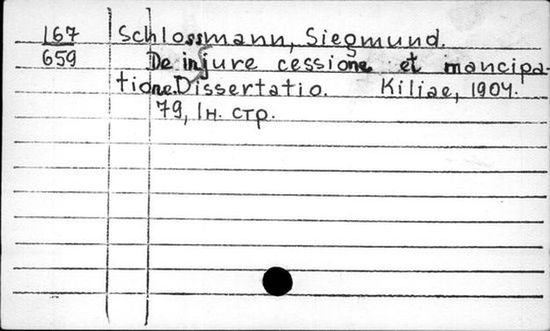 167 Schlossmann, Siegmund.
659 De injure cessione et mancipa-
tione. Dissertatio. Kiliae, 1904.
79, 1н. стр.